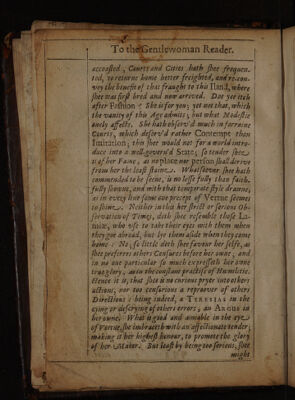 To the Gentlewoman Reader.
accoosted, Courts and Cities hath shee frequen-
ted, to returne home better freighted, and re-con-
vey the benefit of that fraught to this Iland, where
shee was first bred and now arrived. Doe yee itch
after Fashion? She is for you; yet not that, which
the vanity of this Age admits; but what Modestie
onely affects. She hath observ'd much in forraine
Courts, which deserv'd rather Contempt than
Imitation; this shee would not for a world intro-
duce into a well-govern'd State; so tender shee
is of her Fame, as no place nor person shall derive
from her the least staine. Whatsoever shee hath
commended to be seene, is no lesse fully than faith-
fully showne, and with that temperate style drawne,
as in every line some one precept of Vertue seemes
to shine. Neither in this her strict or serious Ob-
servation of Times, doth shee resemble those La-
miæ, who use to take their eyes with them when
they goe abroad, but lay them aside when they came
home: No, so little doth shee favour her selfe, as
shee preferres others Censures before her owne; and
in no one particular so much expresseth her owne
true glory, as in the constant practise of Humilitie.
Hence it is, that shee is no curious pryer into others
actions, nor too censorious a reproover of others
Directions: being indeed, a TERESIAS in the
eying or descrying of others errors; an ARGUS in
her owne. What is good and amiable in the eye
of Vertue, she imbraceth with an affectionate tender;
making it her highest honour, to promote the glory
of her Maker. But least by being too serious, shee
might